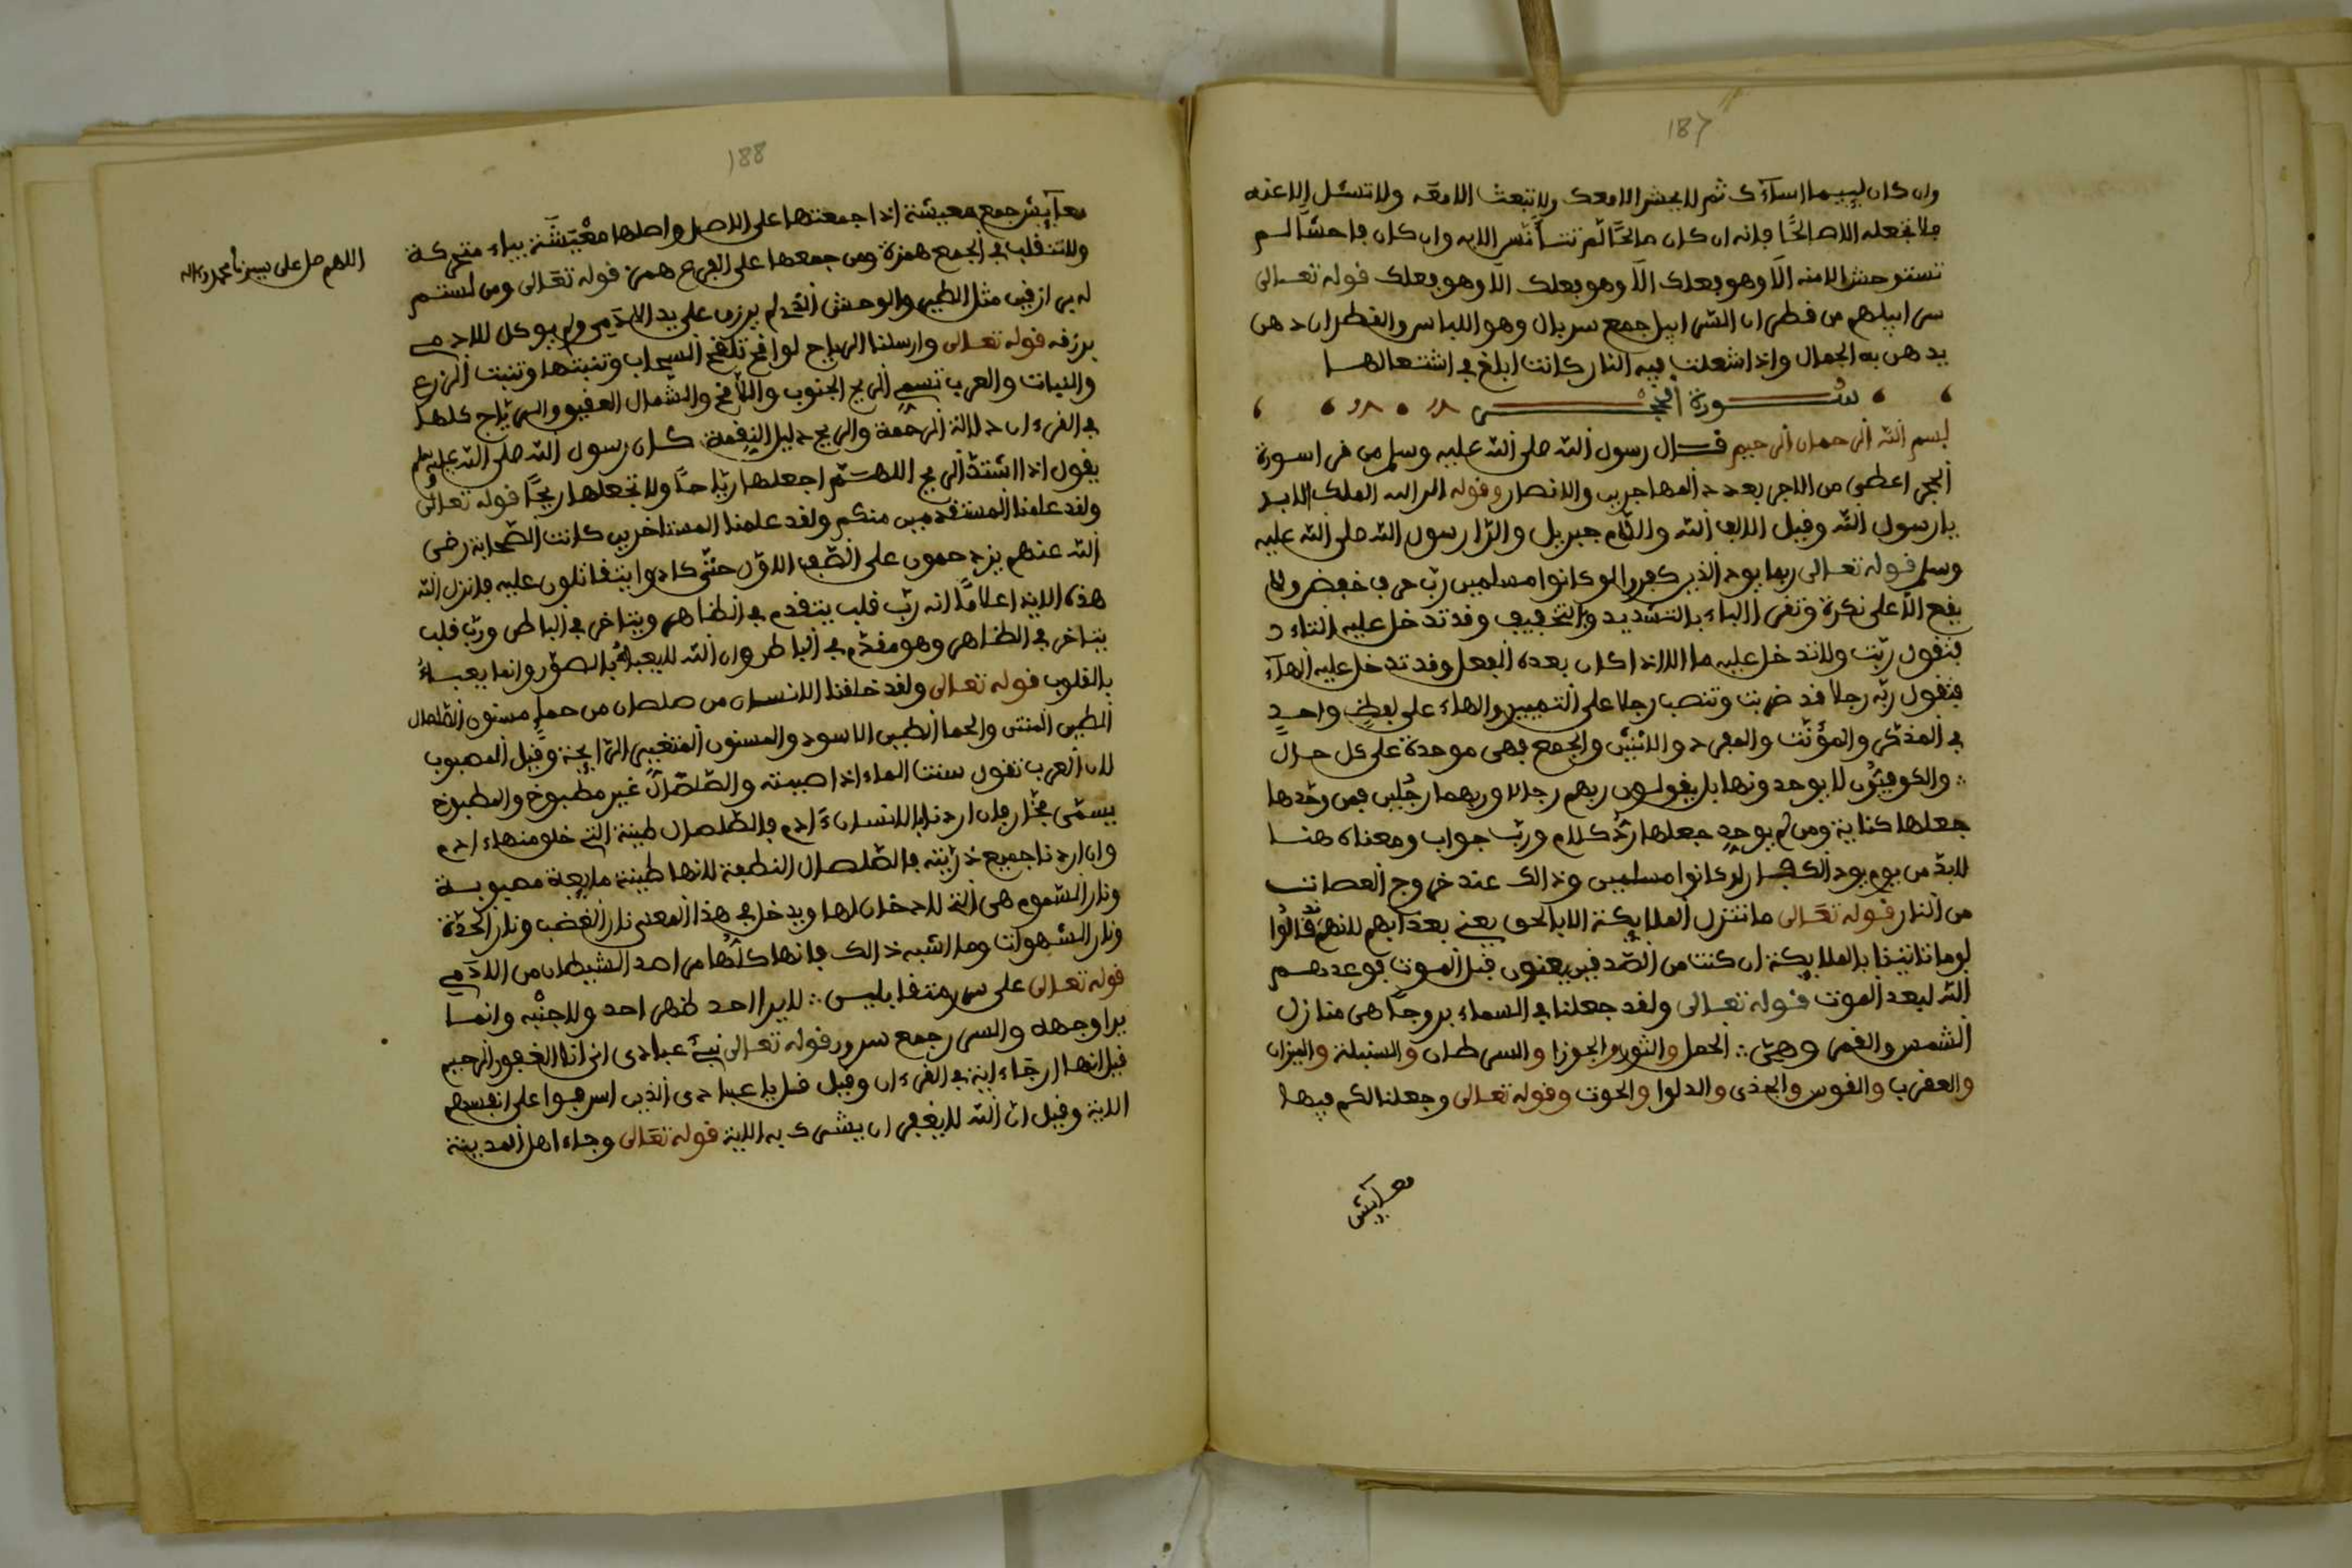 187
وان كان لييما اساءك ثم لا يحشر الا معك ولا تبعث الا معه ولا تسئل الا عنه
فلا تجعله الا صالحًا فانه ان كان صالحًا لم تستأنس الا به وان كان فاحشًا لم
تستوحش الا منه الا وهو فعلك الا وهو فعلك الا وهو فعلك قوله تعالى
سرابيلهم من قطران السرابيل جمع سربال وهو اللباس والقطران دهن
يدهن به الجمال واذا اشعلت فيه النار كانت ابلغ في اشتعالها
سورة الحجر
بسم الله الرحمان الرحيم قال رسول الله صلى الله عليه وسلم من قرا سورة
الحجر اعطى من الاجر بعدد المهاجرين والانصار وقوله الر الله الملك الابد
يا رسول الله وقيل الالف الله واللام جبريل والرا رسول الله صلى الله عليه
وسلم قوله تعالى ربما يود الذين كفروا لو كانوا مسلمين ربّ حرف خفض ولا
يقع الا على نكرة وتقرى الباء بالتشديد وبالتخفيف وقد تدخل عليه التاء
فتقول ربّت ولا تدخل عليه ما الا اذا كان بعده الفعل وقد تدخل عليه الهاء
فتقول ربّه رجلا قد ضربت وتنصب رجلا على التمييز والهاء على لفظ واحد
في المذكر والمؤنّث والمفرد والاثنين والجمع فهى موحدة على كل حال
والكوفيّون لا يوحدونها بل يقولون ربهم رجالا وربهما رجلين فمن وحّدها
جعلها كناية ومن لم يوحد جعلها ردّ كلام وربّ جواب ومعناه هنا
لا بدّ من يوم يود الكفار لو كانوا مسلمين وذالك عند خروج العصات
من النار قوله تعالى ما تنزل الملايكة الا بالحق يعنى بعذابهم لانهم قالوا
لوما تاتينا بالملايكة ان كنت من الصّدقين يعنون قبل الموت فوعدهم
الله لبعد الموت قوله تعالى ولقد جعلنا في السماء بروجًا هى منازل
الشمس والقمر وهىّ الحمل والثور والجوزا والسرطان والسنبلة والميزان
والعقرب والقوس والجدى والدلوا والحوت وقوله تعالى وجعلنا لكم فيها
معايش
188
معايش جمع معيشة اذا جمعتها على الاصل واصلها معْيَشَة بياء متحركة
ولا تنقلب في الجمع همزة ومن جمعها على الفرع همز قوله تعالى ومن لستم
له برازقين مثل الطير والوحش الذى لم يرزق على يد الآدمى ولم يوكل للادمى
برزقه قوله تعالى وارسلنا الرياح لواقح تلقح السحاب وتنبتها وتنبت الزرع
والنبات والعرب تسمى الريح الجنوب واللاقح والشمال العقيم والرياح كلها
في القرءان دلالة الرحمة والريح دليل النقمة كان رسول الله صلى الله عليه وسلم
يقول اذا اشتدّ الريح اللهمّ اجعلها رياحًا ولا تجعلها ريحًا قوله تعالى
ولقد علمنا المستقدمين منكم ولقد علمنا المستاخرين كانت الصّحابة رضى
الله عنهم يزدحمون على الصّف الاوّل حتّى كادوا يتقاتلون عليه فانزل الله
هذه الاية اعلامًا انه ربّ قلب يتقدم في الظاهر ويتاخر في الباطن وربّ قلب
يتاخر في الظاهر وهو مقدّم في الباطن وان الله لا يعبأ بالصوّر وانما يعبأ
بالقلوب قوله تعالى ولقد خلقنا الانسان من صلصال من حمإ مسنون الصّلصال
الطين المنتن والحما الطين الاسود والمسنون المتغيّر الرّايحة وقيل المصبوب
لان العرب تقول سننت الماء اذا صببته والصّلصال غير مطبوخ والمطبوخ
يسمّى فخّار فان اردنا بالانسان ءادم فالصّلصال طينة التى خلق منها ءادم
وان اردنا جميع ذرّيته فالصّلصال النطفة لانها طينة مايعة مصبوبة
ونار السّموم هى التى لا دخان لها ويدخل في هذا المعنى نار الغضب ونار الحدّة
ونار الشهوات وما اشبه ذالك فانها كلّها من احد الشيطان من الآدمى
قوله تعالى على سرر متقابلين لا يرا احد ظهر احد ولا جنبه وانما
يرا وجهه والسرر جمع سرور قوله تعالى نبّئ عبادى انى انا الغفور الرحيم
قيل انها ارجاء اية في القرءان وقيل قل يا عبادى الذين اسرفوا على انفسهم
الاية وقيل ان الله لا يغفر ان يشرك به الاية قوله تعالى وجاء اهل المدينة
اللهم صل على سيدنا محمد وءاله